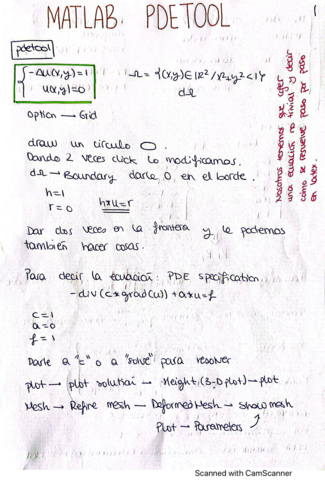 MATLAB. PDETOOL
1
pdetool
-Δu(x,y)=1
u(x,y)=0
Ω = {(x,y)∈ℝ²/x²+y²<1}
∂Ω
Option → Grid
draw un círculo
Dando 2 veces click lo modificamos.
∂Ω → Boundary darle 0, en el borde.
h=1
r=0
h*u=r
Dar dos veces en la frontera y le podemos
también hacer cosas.
Para decir la ecuación: PDE specification
-div(c*grad(u))+a*u=f
c=1
a=0
f=1
Darle a "=" o a "solve" para resolver
plot → plot solution → Height(3-D plot) → plot
Mesh → Refine mesh → Deformed Mesh → show mesh
Plot → Parameters
Nosotros tenemos que coger
una ecuación no trivial y decir
cómo se resuelve paso por paso
en latex.
Scanned with CamScanner